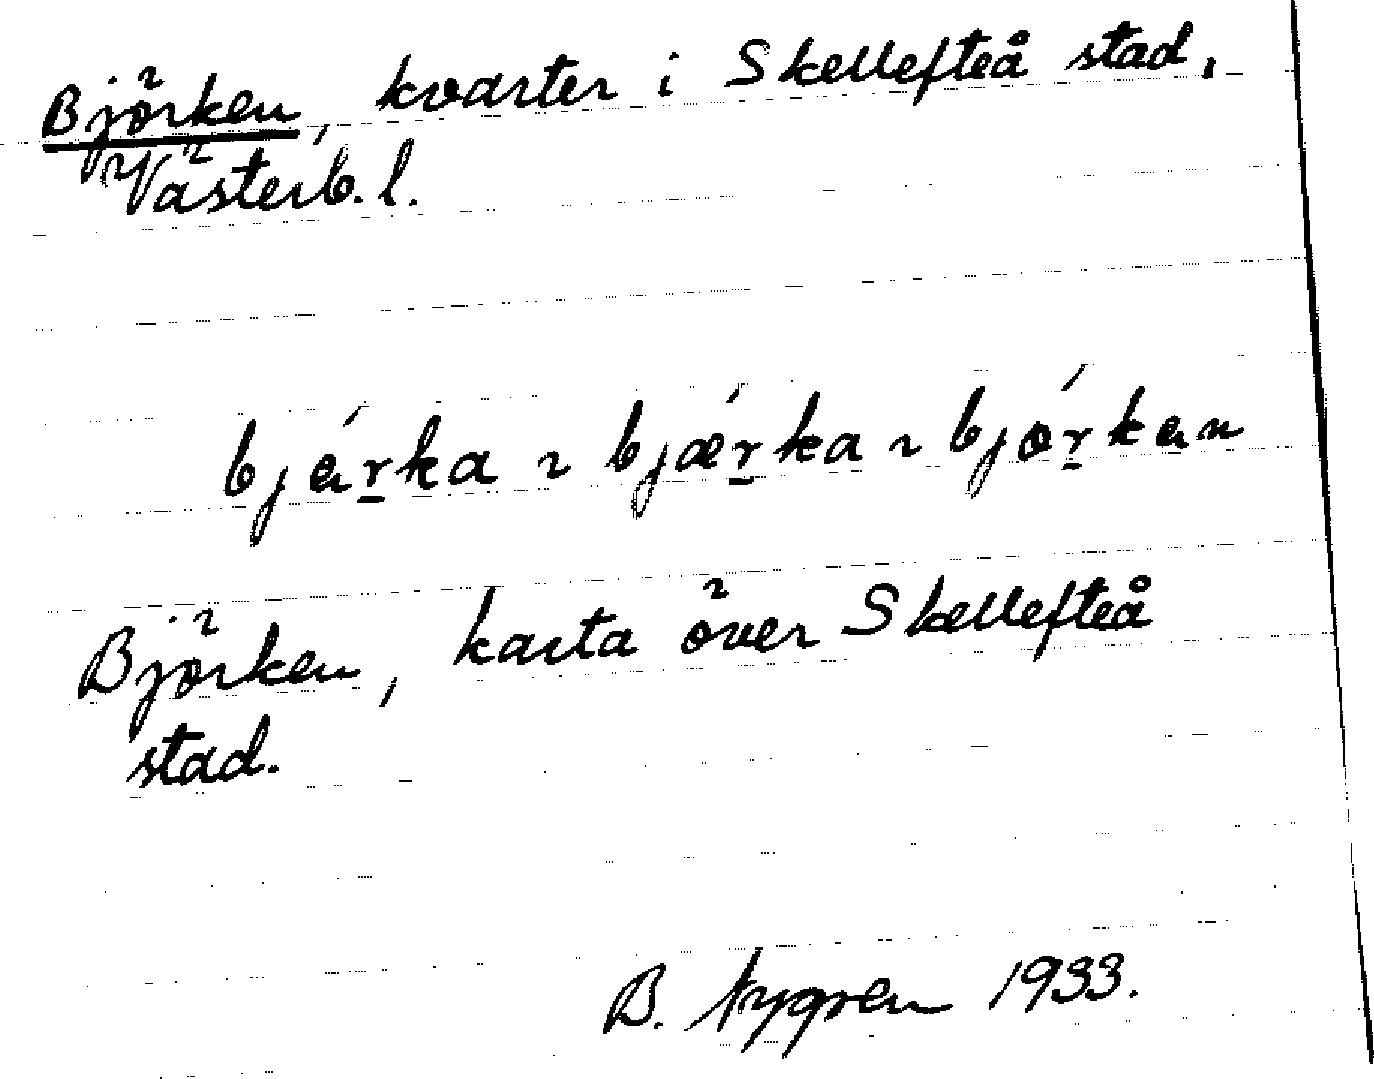 Björken, kvarter i Skellefteå stad,
Västerb. l.
bjár̠ka ~ bjǽr̠ka ~ bjór̠kan
Björken, karta över Skellefteå
stad.
B. Nygren 1933.